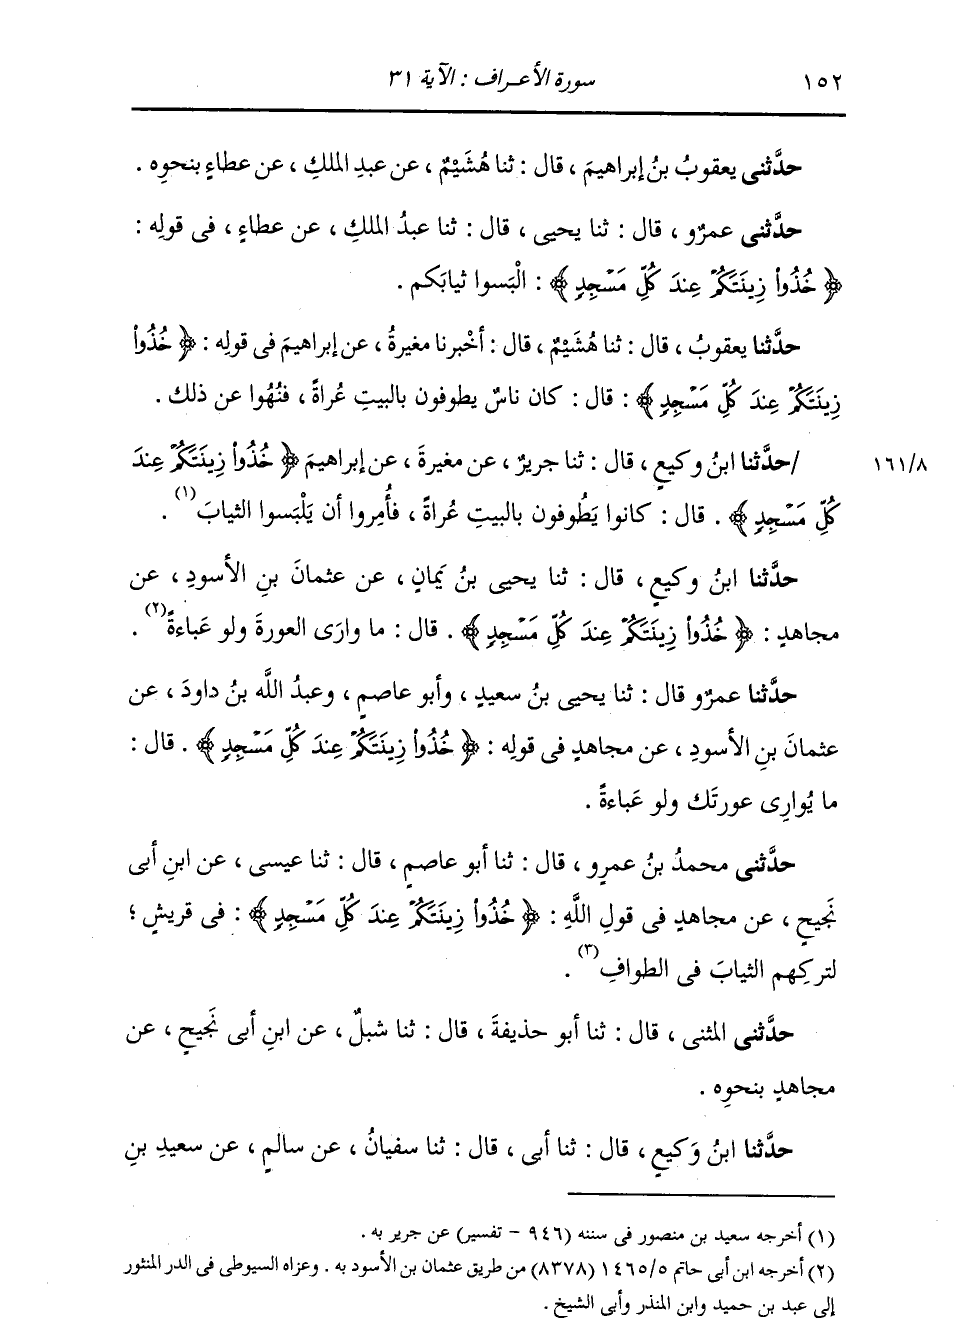 ١٥٢ سورة الأعراف : الآية ٣١
حدَّثنى يعقوبُ بنُ إبراهيمَ ، قال : ثنا هُشَيْمٌ ، عن عبدِ الملكِ ، عن عطاءٍ بنحوِه .
حدَّثنى عمرٌو ، قال : ثنا يحيى ، قال : ثنا عبدُ الملكِ ، عن عطاءٍ ، فى قولِه :
﴿ خُذُواْ زِينَتَكُمْ عِندَ كُلِّ مَسْجِدٍ ﴾ : الْبَسوا ثيابَكم .
حدَّثنا يعقوبُ ، قال : ثنا هُشَيْمٌ ، قال : أخْبرنا مغيرةُ ، عن إبراهيمَ فى قولِه : ﴿ خُذُواْ
زِينَتَكُمْ عِندَ كُلِّ مَسْجِدٍ ﴾ : قال : كان ناسٌ يطوفون بالبيتِ عُراةً ، فنُهُوا عن ذلك .
١٦١/٨ /حدَّثنا ابنُ وكيعٍ ، قال : ثنا جريرٌ ، عن مغيرةَ ، عن إبراهيمَ ﴿ خُذُواْ زِينَتَكُمْ عِندَ
كُلِّ مَسْجِدٍ ﴾ . قال : كانوا يَطُوفون بالبيتِ عُراةً ، فأُمِروا أن يَلْبَسوا الثيابَ (١) .
حدَّثنا ابنُ وكيعٍ ، قال : ثنا يحيى بنُ يَمانٍ ، عن عثمانَ بنِ الأسودِ ، عن
مجاهدٍ : ﴿ خُذُواْ زِينَتَكُمْ عِندَ كُلِّ مَسْجِدٍ ﴾ . قال : ما وارَى العورةَ ولو عَباءةً (٢) .
حدَّثنا عمرٌو قال : ثنا يحيى بنُ سعيدٍ ، وأبو عاصمٍ ، وعبدُ اللَّه بنُ داودَ ، عن
عثمانَ بنِ الأسودِ ، عن مجاهدٍ فى قولِه : ﴿ خُذُواْ زِينَتَكُمْ عِندَ كُلِّ مَسْجِدٍ ﴾ . قال :
ما يُوارِى عورتَك ولو عَباءةً .
حدَّثنى محمدُ بنُ عمرٍو ، قال : ثنا أبو عاصمٍ ، قال : ثنا عيسى ، عن ابنِ أبى
نَجيحٍ ، عن مجاهدٍ فى قولِ اللَّهِ : ﴿ خُذُواْ زِينَتَكُمْ عِندَ كُلِّ مَسْجِدٍ ﴾ : فى قريشٍ ؛
لتركِهم الثيابَ فى الطوافِ (٣) .
حدَّثنى المثنى ، قال : ثنا أبو حذيفةَ ، قال : ثنا شبلٌ ، عن ابنِ أبى نَجيحٍ ، عن
مجاهدٍ بنحوِه .
حدَّثنا ابنُ وَكيعٍ ، قال : ثنا أبى ، قال : ثنا سفيانُ ، عن سالمٍ ، عن سعيدِ بنِ
(١) أخرجه سعيد بن منصور فى سننه (٩٤٦ - تفسير) عن جرير به .
(٢) أخرجه ابن أبى حاتم ١٤٦٥/٥ (٨٣٧٨) من طريق عثمان بن الأسود به . وعزاه السيوطى فى الدر المنثور
إلى عبد بن حميد وابن المنذر وأبى الشيخ .